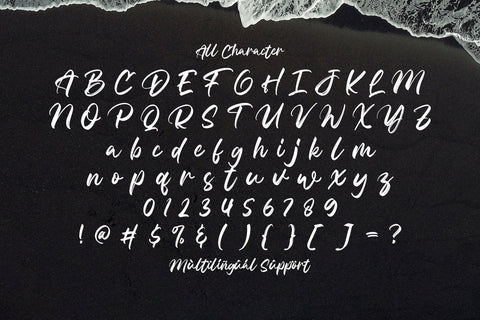 All Character
A B C D E F G H I J K L M
N O P Q R S T U V W X Y Z
a b c d e f g h i j k l m
n o p q r s t u v w x y z
0 1 2 3 4 5 6 7 8 9
! @ # $ % & ( ) { } [ ] = ?
Mùltilingùàl Sùppört